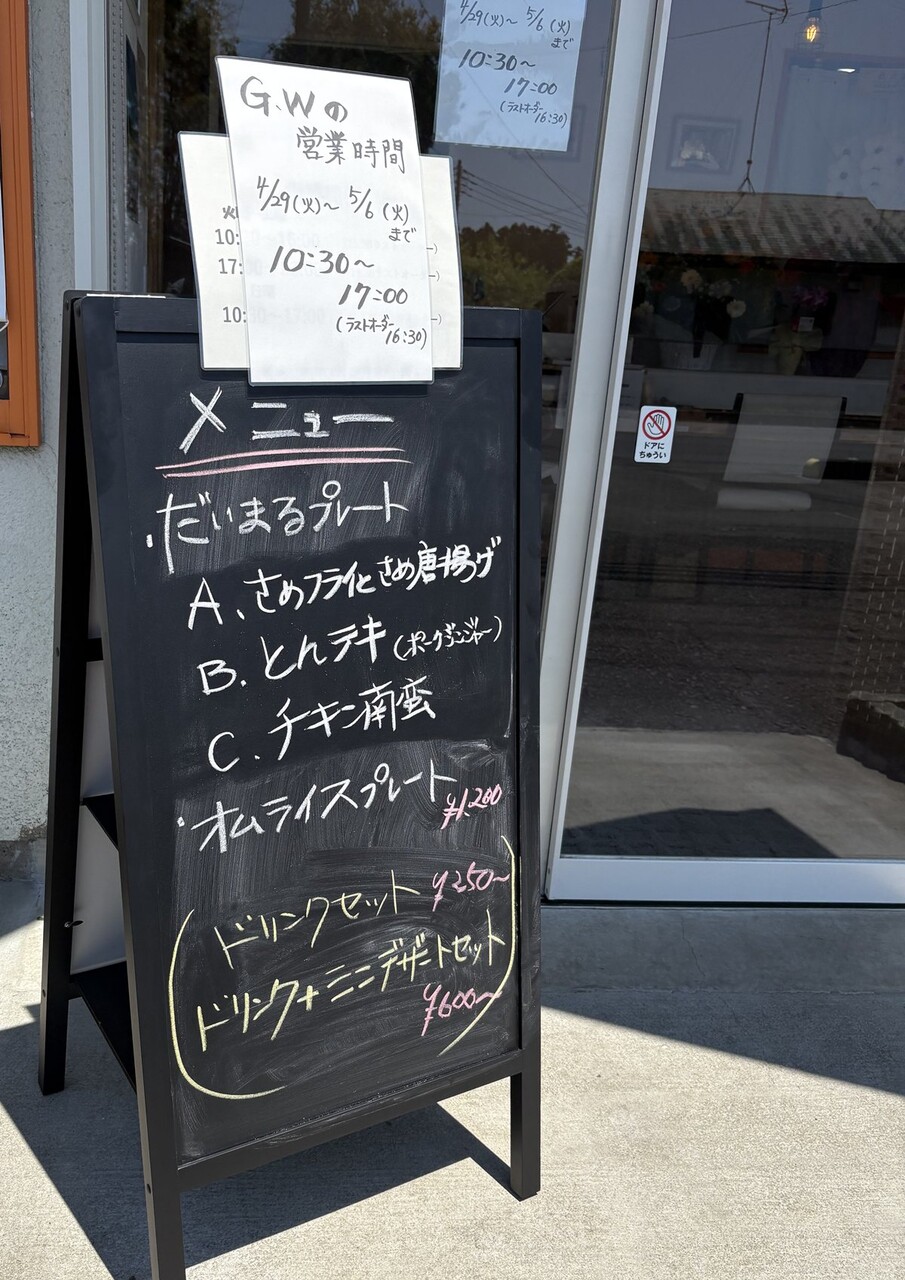 4/29(火)～ 5/6(火)
まで
10:30～
17:00
(ラストオーダー
16:30)
G.Wの
営業時間
4/29(火)～ 5/6(火)
まで
10:30～
17:00
(ラストオーダー
16:30)
10:
17:
10:
メニュー
・だいまるプレート
A、さめフライとさめ唐揚げ
B.とんテキ(ポークジンジャー)
C.チキン南蛮
・オムライスプレート
¥1,200
ドリンクセット ¥250～
ドリンク+ミニデザートセット
¥600～
ドアに
ちゅうい